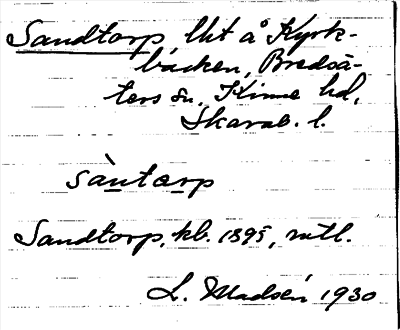 Sandtorp, lht å Kyrk-
backen, Bredsä-
ters sn, Kinne hd,
Skarab. l.
sàntorp
Sandtorp, kb. 1895, mtl.
L. Madsén 1930